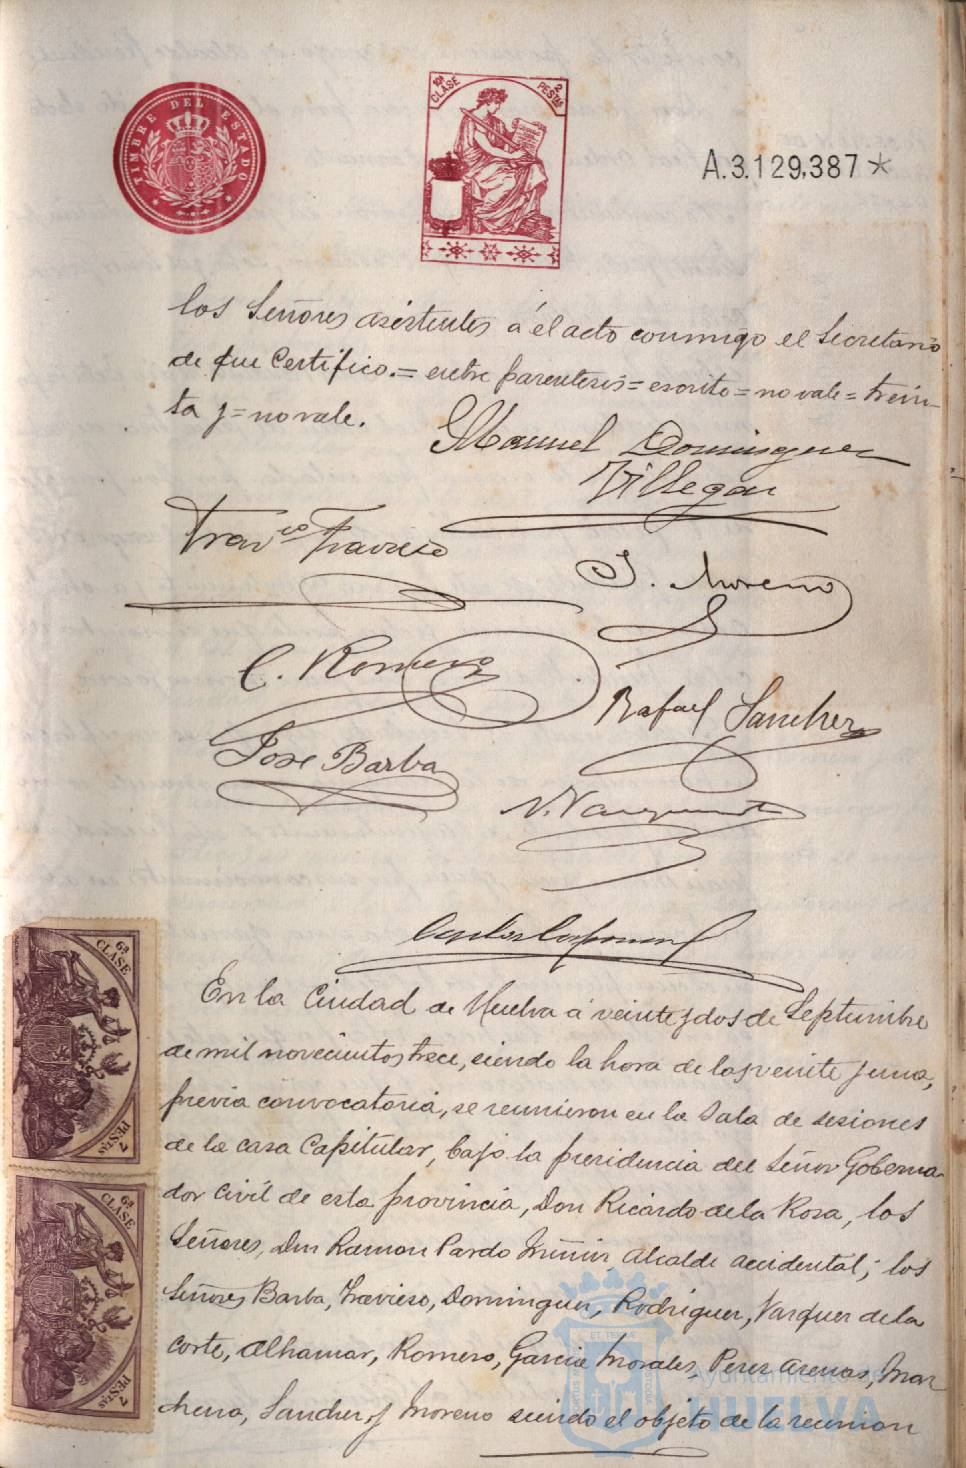 TIMBRE DEL ESTADO
10ª CLASE 2 PESTAS
A.3.129,387 *
los Señores asistentes á el acto conmigo el Secretario
de que Certifico.= entre parentesis = escrito = no vale = trein-
ta y = no vale.
Manuel Dominguez
Villegas
Travieso
J. Moreno
C. Romero
Rafael Sanchez
Jose Barba
6ª CLASE 7 PESTAS
6ª CLASE 7 PESTAS
En la Ciudad de Huelva á veinte y dos de Septiembre
de mil novecientos trece, siendo la hora de las veinte y una,
previa convocatoria, se reunieron en la Sala de sesiones
de la casa Capitular, bajo la presidencia del Señor Goberna-
dor Civil de esta provincia, Don Ricardo de la Rosa, los
Señores, Don Ramon Pardo Alcalde accidental; los
Señores Barba, Travieso, Dominguez, Rodriguez, Vazquez de la
Corte, Alhamar, Romero, Garcia Morales, Perez Arenas, Mar
chena, Sanchez y Moreno siendo el objeto de la reunion
Ayuntamiento de
HUELVA